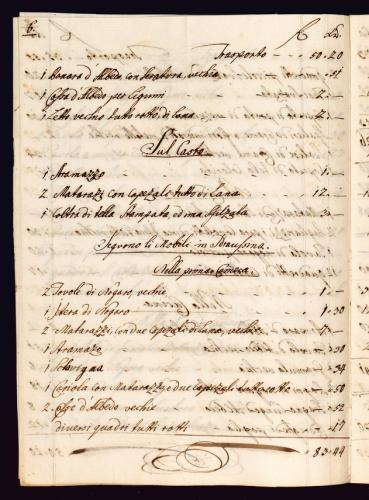 6. R Xr.
Trasporto - - - 50.20
1 Banara d'Albedo, con Seratura, vechia - .51
1 Cassa d'Albedo per Legumi - 2.-
1 Letto vechio tutto rotto, di Lana - 2.-
Sul Casto.
1 Stramazzo - 1.-
2 Matarazzi con Capezali tutto di Lana - 12.-
1 Coltra di tella Stampata, ed una 3.-
Seguono li Mobili in
Nella prima Camera.
2 Tavole di Nogaro, vechie - 1.-
1 di Nogaro - 1.30
2 Matarazzi, con due Capezali di Lana, vechi - 7.-
1 Stramazo - .30
1 Schiavigna - .34
1 Cariola con Matarazzi, e due Capezali tutto rotto - .50
2 d'Albedo vechie - .52
diversi quadri tutti rotti - .17
83.44